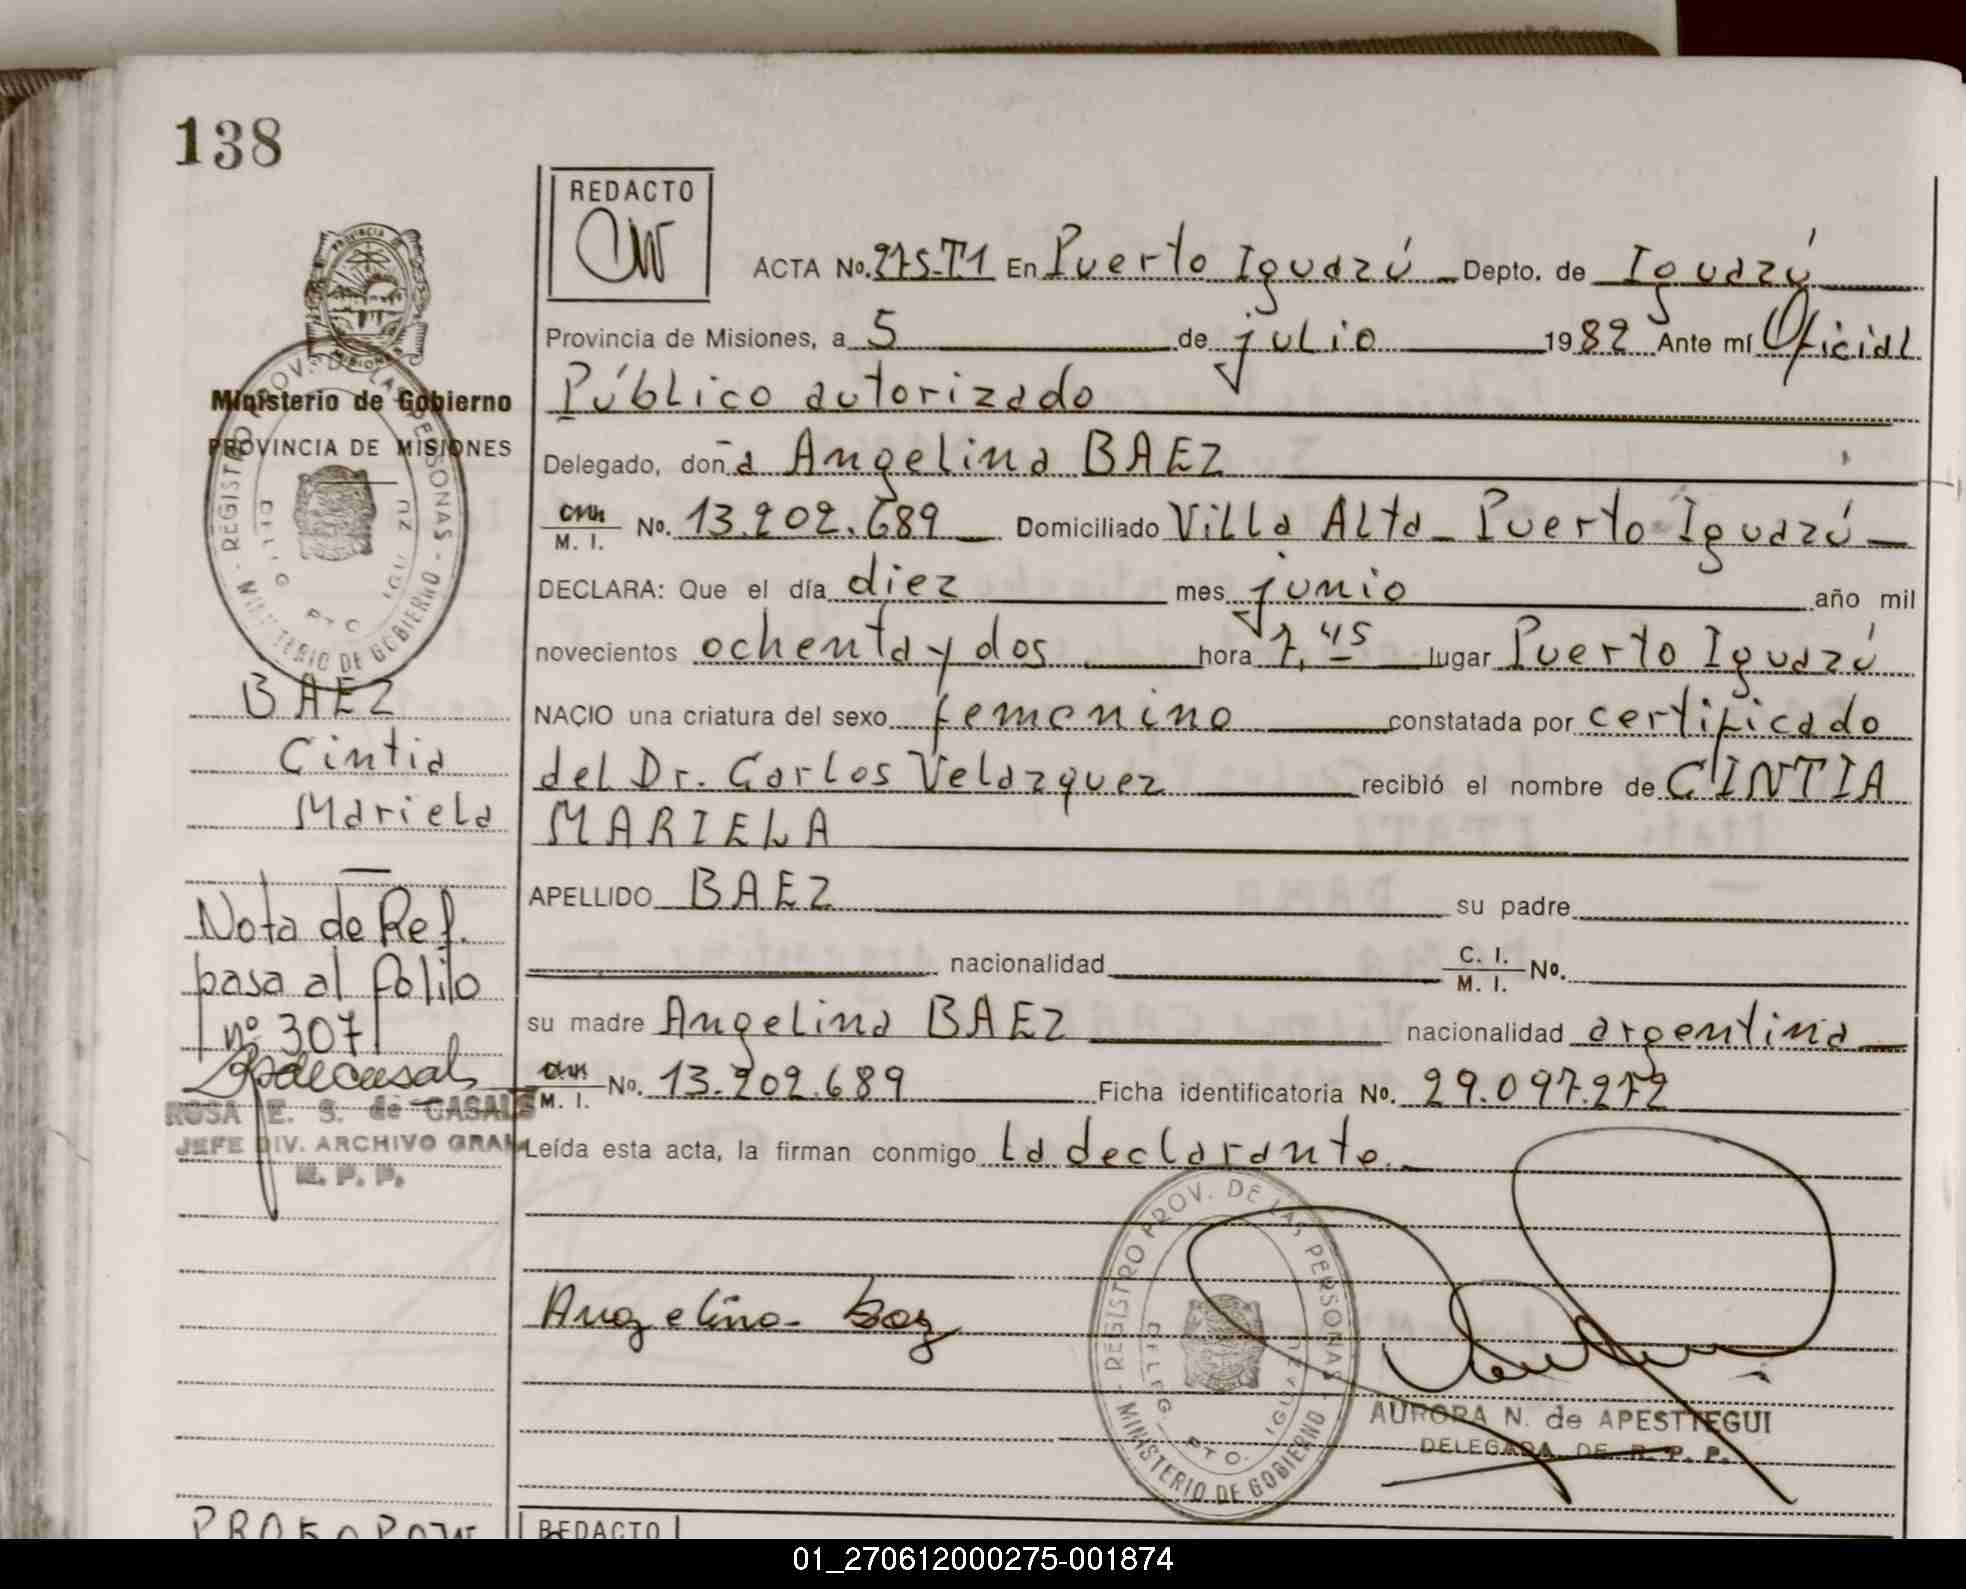 138
REDACTO
ACTA No. 275-T1 En Puerto Iguazú Depto. de Iguazú
Provincia de Misiones, a 5 de julio 1982 Ante mí Oficial
Público autorizado
Delegado, doña Angelina BAEZ
M. I. No. 13.202.689 Domiciliado Villa Alta - Puerto Iguazú
DECLARA: Que el día diez mes junio año mil
novecientos ochenta y dos hora 7,45 lugar Puerto Iguazú
NACIO una criatura del sexo femenino constatada por certificado
del Dr. Carlos Velazquez recibió el nombre de CINTIA
MARIELA
APELLIDO BAEZ su padre
nacionalidad C. I. M. I. No.
su madre Angelina BAEZ nacionalidad argentina
M. I. No. 13.202.689 Ficha identificatoria No. 29.097.272
Leída esta acta, la firman conmigo la declarante.
Angelina Baez
REGISTRO PROV. DE LAS PERSONAS
MINISTERIO DE GOBIERNO
DELEG. PTO. IGUAZU
AURORA N. de APESTTEGUI
DELEGADA DE R. P. P.
PROVINCIA DE
MISIONES
Ministerio de Gobierno
PROVINCIA DE MISIONES
REGISTRO PROV. DE LAS PERSONAS
MINISTERIO DE GOBIERNO
DELEG. PTO. IGUAZU
BAEZ
Cintia
Mariela
Nota de Ref.
pasa al folio
nº 307
ROSA E. S. de CASALS
JEFE DIV. ARCHIVO GRAL
R. P. P.
REDACTO
01_270612000275-001874